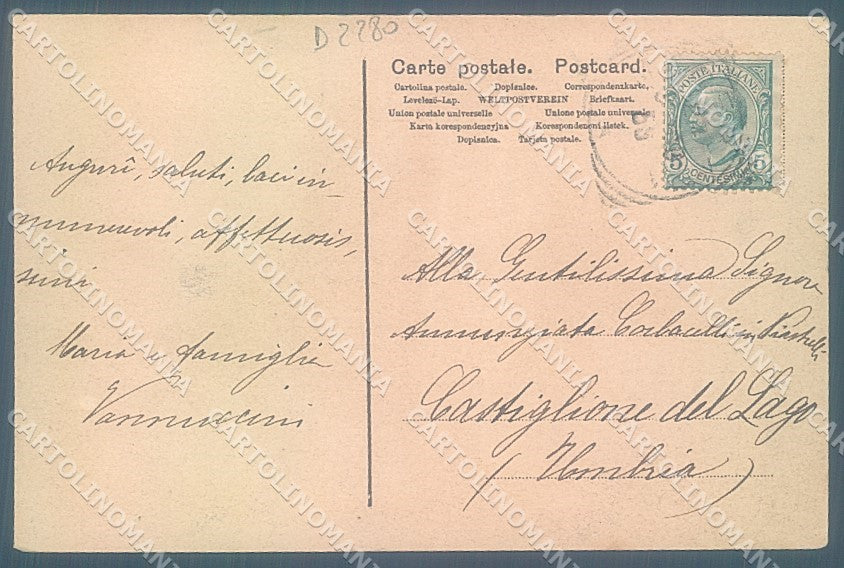 D 2280
Auguri, saluti, baci in-
numerevoli, affettuosis,
simi
Maria e famiglia
Vannuccini
Carte postale. Postcard.
Cartolina postale. Dopisnice. Correspondenzkarte.
Levelező-Lap. WELTPOSTVEREIN Briefkaart.
Union postale universelle Unione postale universale
Karta korespondencyjna Korespondenčni listek.
Dopisnica. Tarjeta postale.
POSTE ITALIANE
5 CENTESIMI 5
Alla Gentilissima Signora
Annunziata in
Castiglione del Lago
(Umbria)
CARTOLINOMANIA